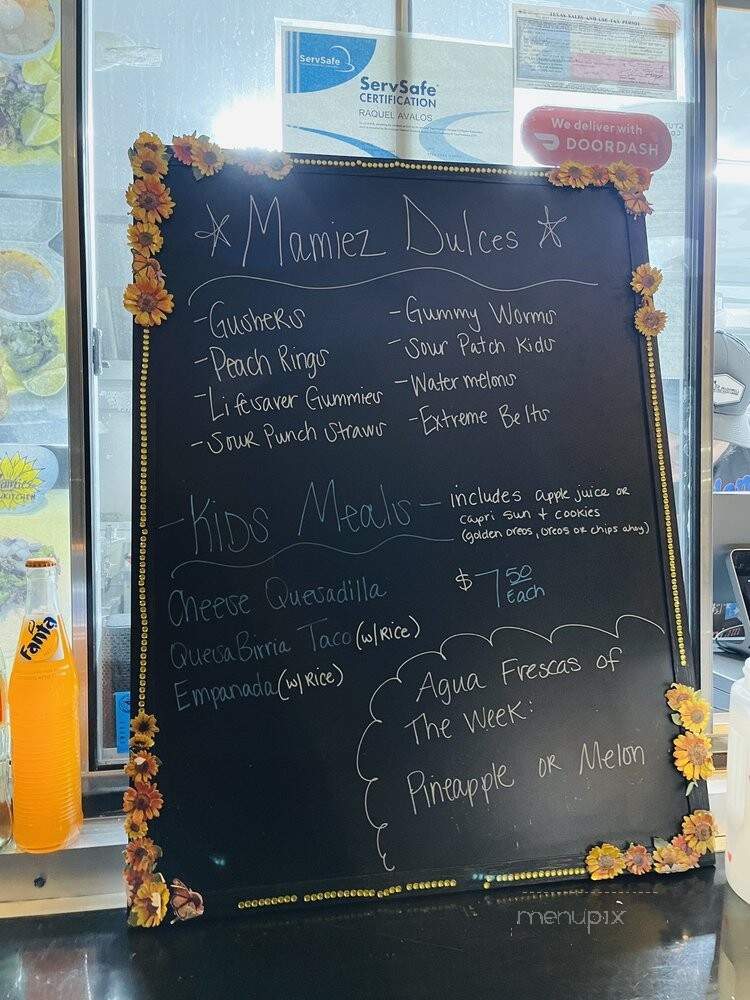 ServSafe
ServSafe
CERTIFICATION
RAQUEL AVALOS
TEXAS SALES AND USE TAX PERMIT
We deliver with
DOORDASH
Mamiez Dulces
- Gushers
- Peach Rings
- Lifesaver Gummies
- Sour Punch Straws
- Gummy Worms
- Sour Patch Kids
- Watermelons
- Extreme Belts
- Kids Meals -
includes apple juice or
capri sun + cookies
(golden oreos, oreos or chips ahoy)
Cheese Quesadilla
QuesaBirria Taco (w/Rice)
Empanada (w/Rice)
$7.50
Each
Agua Frescas of
The Week:
Pineapple or Melon
Fanta
KITCHEN
menupix